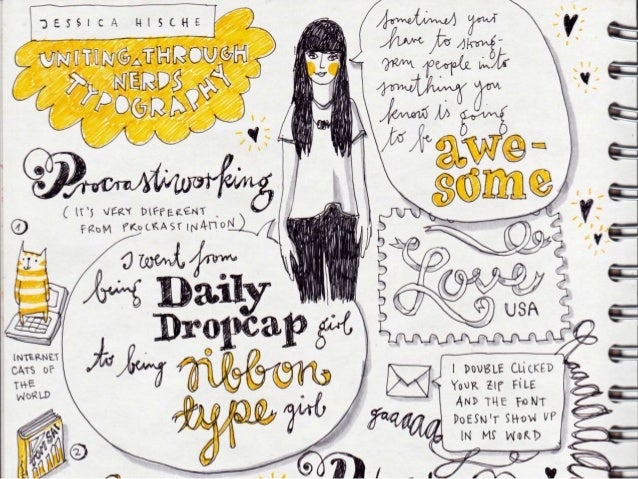 JESSICA HISCHE
UNITING NERDS
THROUGH
TYPOGRAPHY
sometimes you
have to strong-
arm people into
something you
know is going
to be
awe-
some
Procrastiworking
(IT'S VERY DIFFERENT
FROM PROCRASTINATION)
1
INTERNET
CATS OF
THE
WORLD
2
I went from
being Daily
Dropcap girl
to being ribbon
type girl
Love
USA
I DOUBLE CLICKED
YOUR ZIP FILE
AND THE FONT
DOESN'T SHOW UP
IN MS WORD